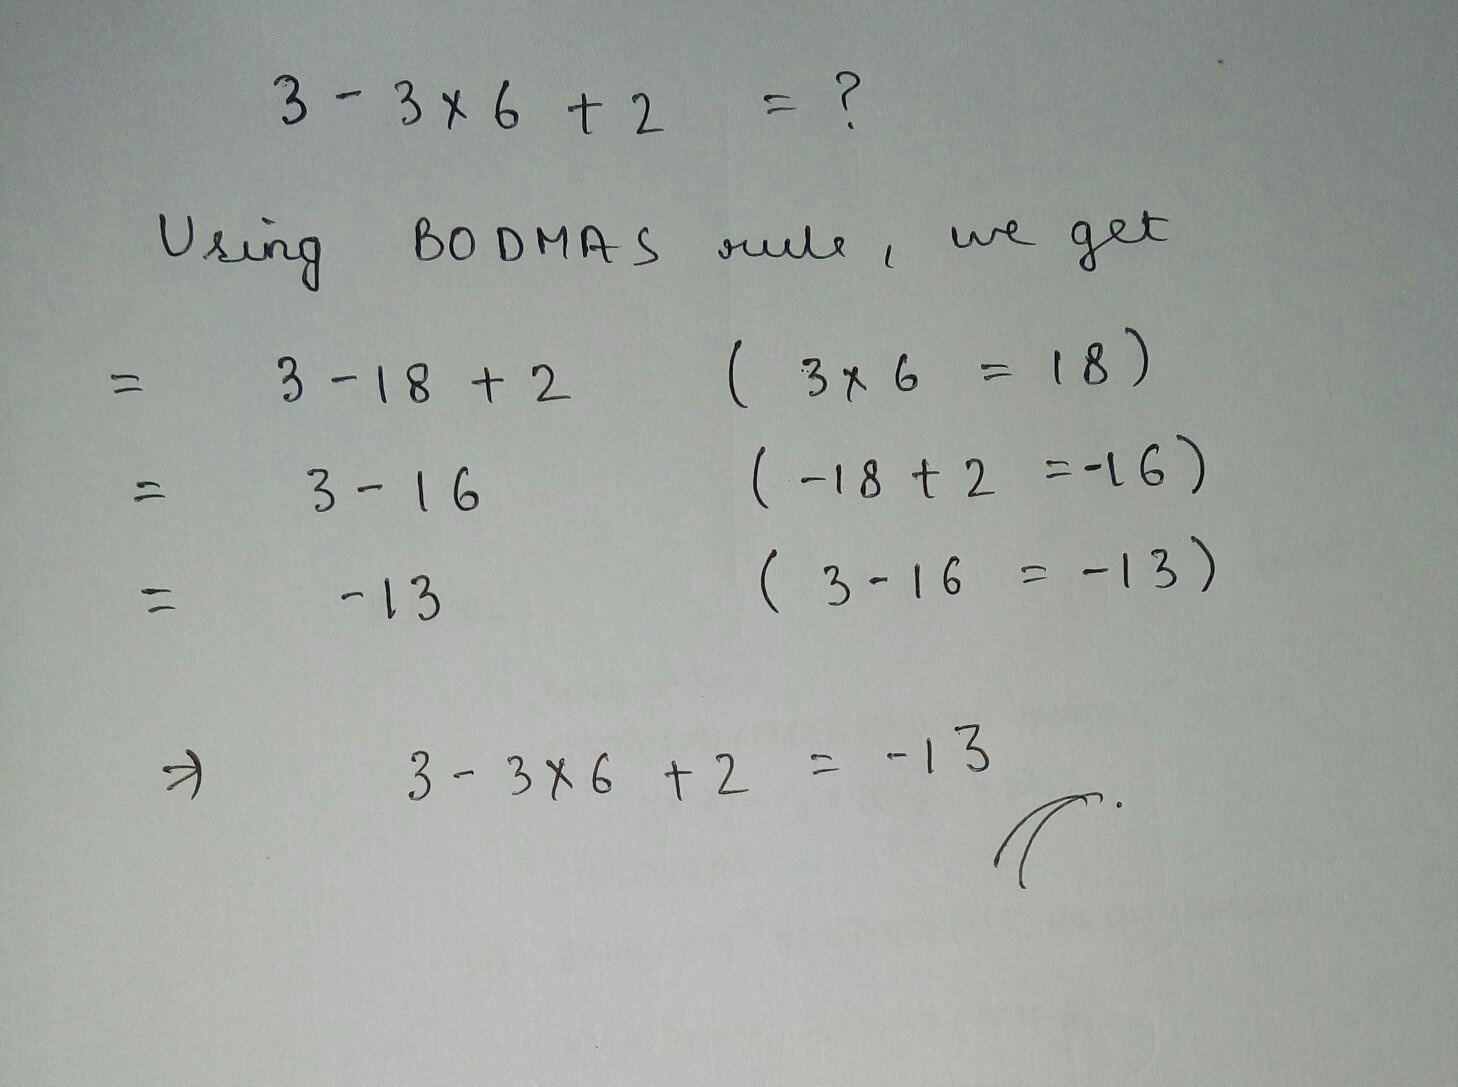 3 - 3 × 6 + 2 = ?
Using BODMAS rule, we get
= 3 - 18 + 2 ( 3 × 6 = 18 )
= 3 - 16 ( -18 + 2 = -16 )
= -13 ( 3 - 16 = -13 )
⇒ 3 - 3 × 6 + 2 = -13